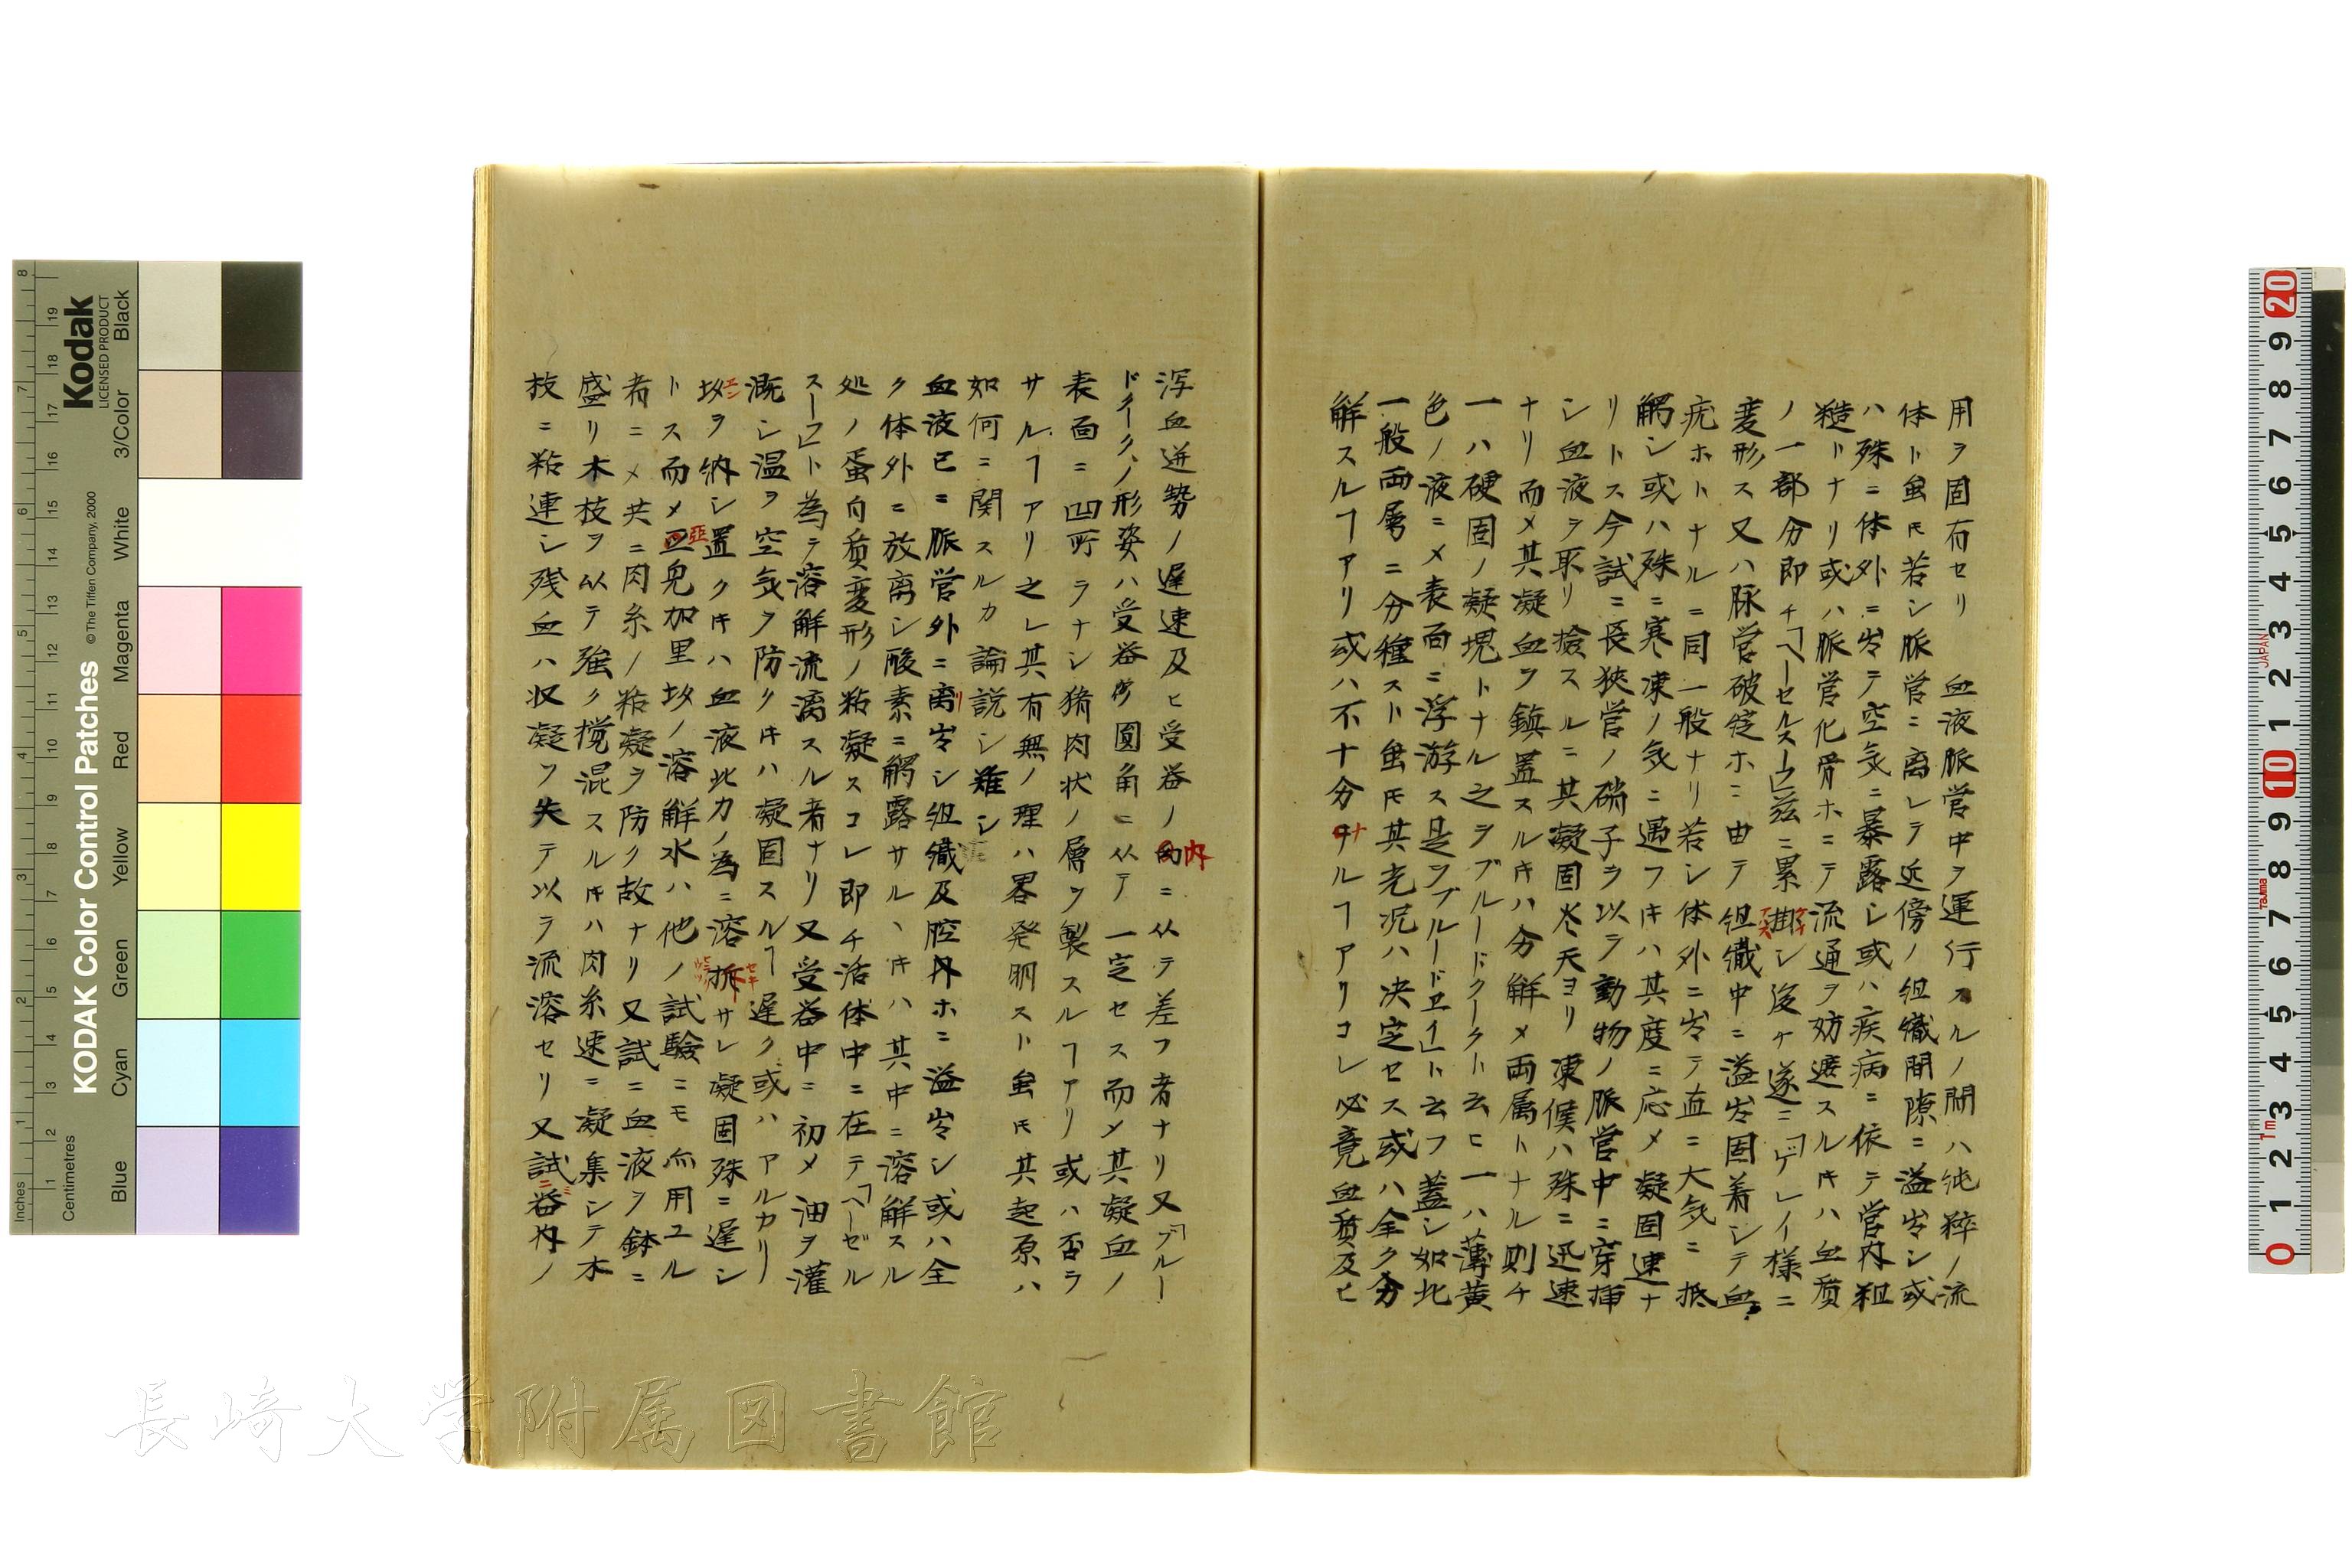 用ヲ固有セリ　血液脈管中ヲ運行スルノ間ハ純粋ノ流
体ト虽𪜈若シ脈管ニ离レテ近傍ノ组織間隙ニ溢出シ或
ハ殊ニ体外ニ出テ空気ニ暴露シ或ハ疾病ニ依テ管内粗
糙トナリ或ハ脈管化骨ホニテ流通ヲ妨遮スルキハ血質
ノ一部分即チ「ヘーセルスー」茲ニ累シ後ケ遂ニ「ゲレイ様ニ
変形ス又ハ脉管破綻ホニ由テ组織中ニ溢出固着シテ血
疣ホトナルニ同一般ナリ若シ体外ニ出テ直ニ大気ニ抵
觸シ或ハ殊ニ寒凍ノ気ニ遇フキハ其度ニ応メ凝固速ナ
リトス今試ニ長狭管ノ硝子ヲ以ラ動物ノ脈管中ニ穿挿
シ血液ヲ取リ撿スルニ其凝固炎天ヨリ凍候ハ殊ニ迅速
ナリ而メ其凝血ヲ鎮置スルキハ分解メ両属トナル則チ
一ハ硬固ノ凝塊トナル之ヲブルードクークト云ヒ一ハ薄黄
色ノ液ニメ表面ニ浮游ス是ヲブルードヱイ」ト云フ蓋シ如此
一般両属ニ分種スト虽𪜈其光况ハ决定セス或ハ全ク分
解スルヿアリ或ハ不十分ナルヿアリコレ必竟血質及ヒ
泻血迸势ノ遅速及ヒ受器ノ内ニ从テ差フ者ナリ又「ブルー
ドクーク、ノ形姿ハ受器ノ圓角ニ从テ一定セス而メ其凝血ノ
表面ニ凹所ラナシ猪肉状ノ層ヲ製スルヿアリ或ハ否ラ
サルヿアリ之レ其有無ノ理ハ畧発明スト虽𪜈其起原ハ
如何ニ関スルカ論説シ难シ
血液已ニ脈管外ニ离出シ组織及腔内ホニ溢出シ或ハ全
ク体外ニ放离シ酸素ニ觸露サルヽキハ其中ニ溶解スル
処ノ蛋白質変形ノ粘凝スコレ即チ活体中ニ在テ「ヘーゼル
スー」ト為テ溶解流漓スル者ナリ又受器中ニ初メ油ヲ灌
溉シ温ヲ空気ヲ防クキハ凝固スルヿ遅ク或ハアルカリー
塩ヲ納シ置クキハ血液此カノ為ニ溶拆サレ凝固殊ニ遅シ
トス而メ亞児加里塩ノ溶解水ハ他ノ試驗ニモ亦用ユル
者ニメ共ニ肉糸ノ粘凝ヲ防ク故ナリ又試ニ血液ヲ鉢ニ
盛リ木枝ヲ以テ強ク撹混スルキハ肉糸速ニ凝集シテ木
枝ニ粘連シ残血ハ収凝ヲ失テ以ラ流溶セリ又試ニ器内ノ
KODAK Color Control Patches
© The Tiffen Company, 2000
Kodak
LICENSED PRODUCT
Inches
Centimetres
Blue
Cyan
Green
Yellow
Red
Magenta
White
3/Color
Black
長崎大学附属図書館